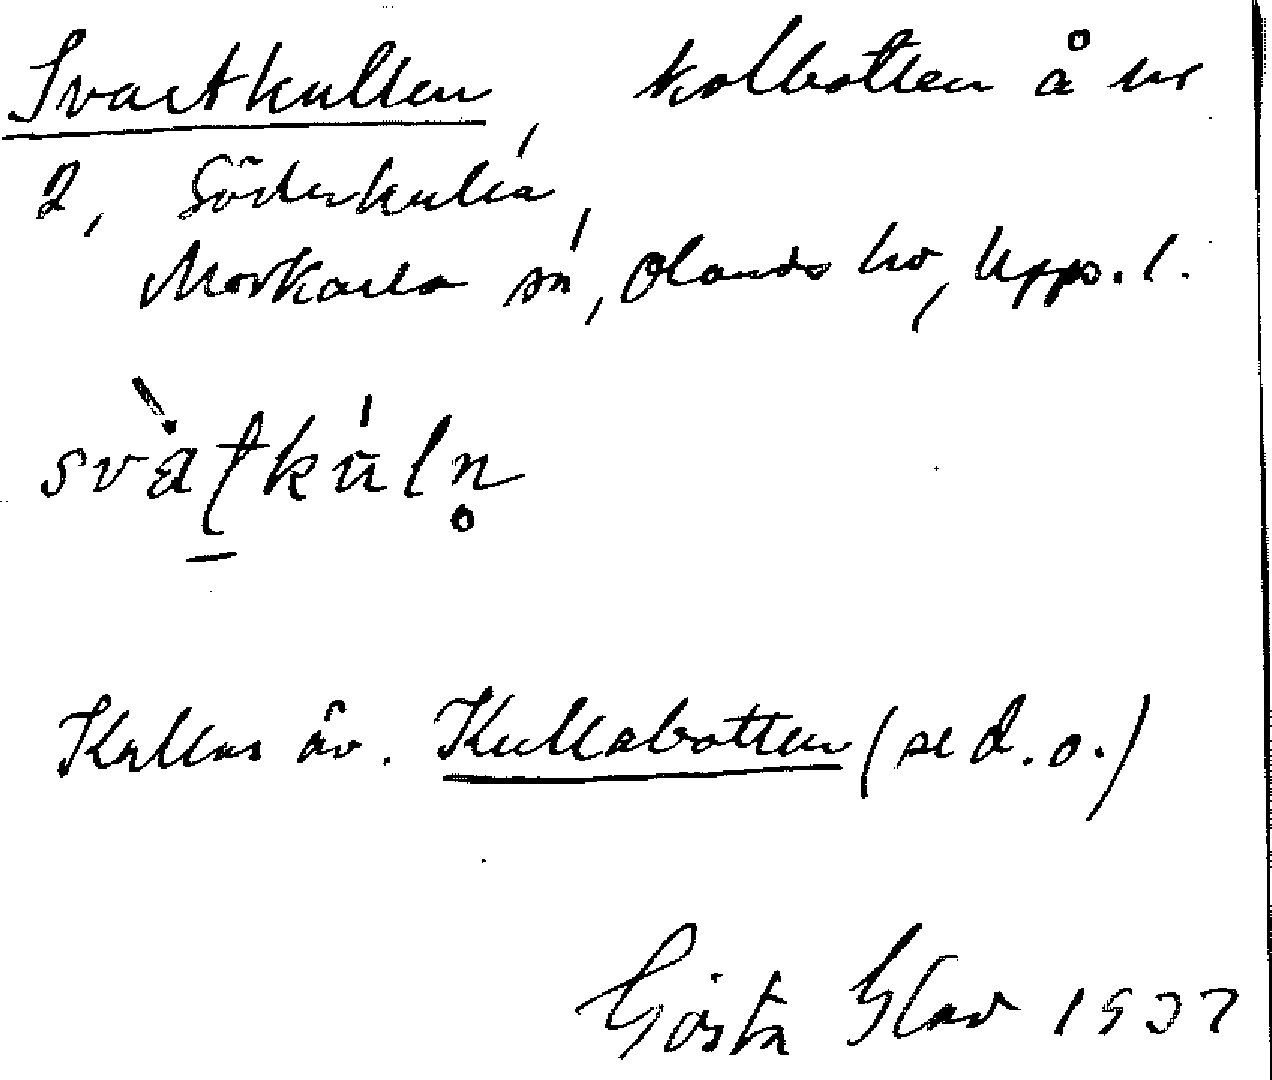 Svartkullen, kolbotten å nr
2, Söderkulla,
Morkarla sn, Olands hd, Uppl.
Kallas äv. Kullabotten (se d. o.)
Gösta Glad 1937